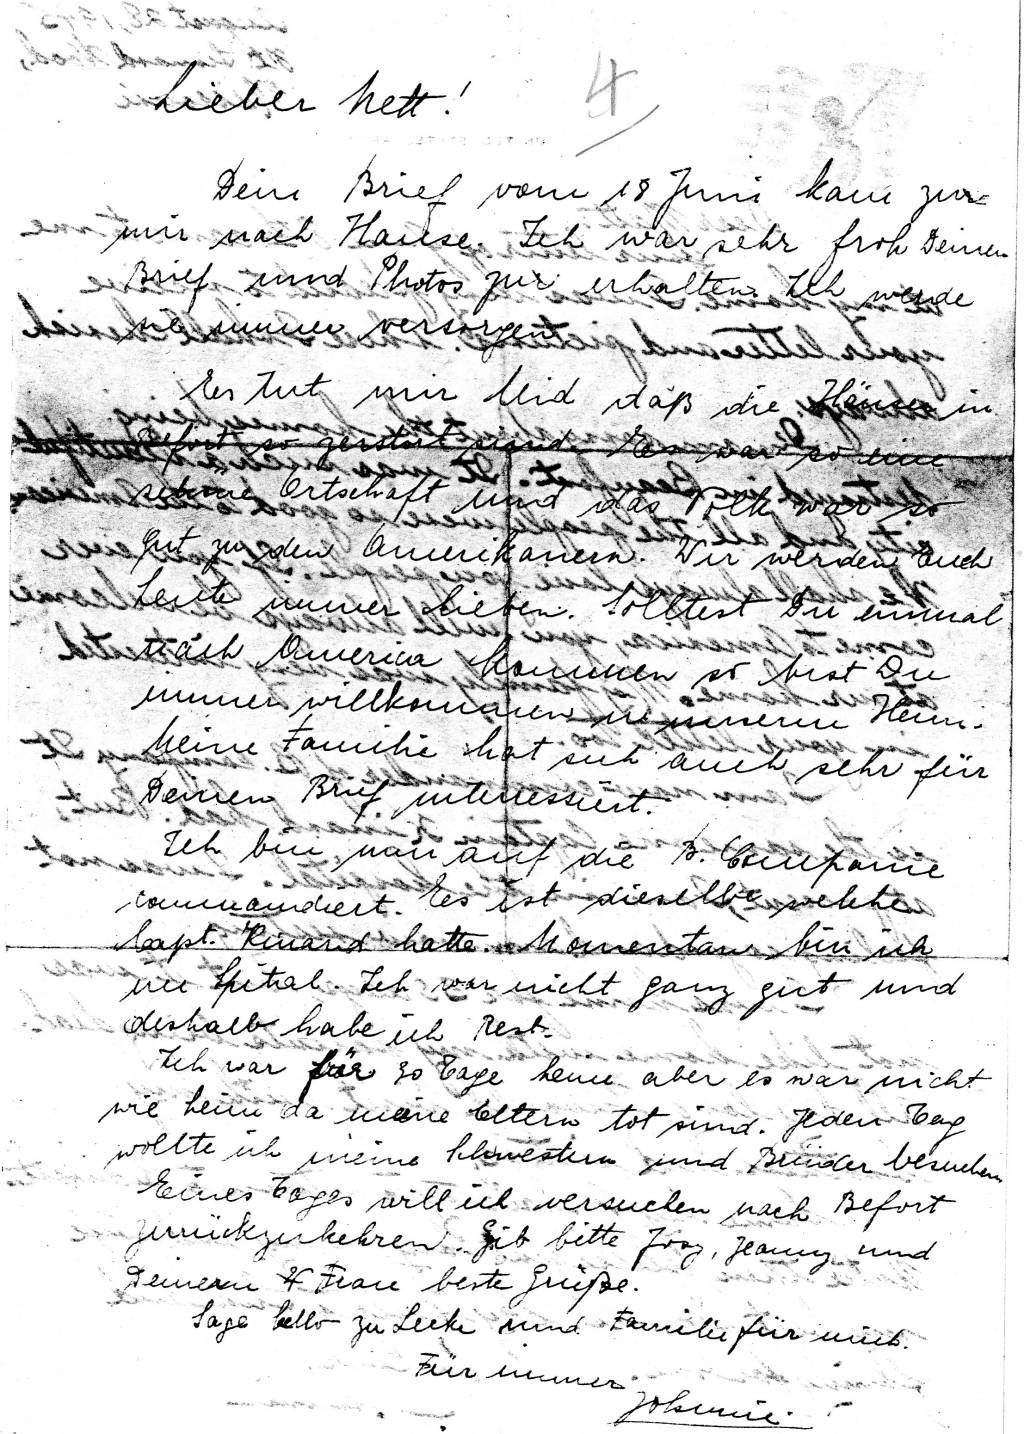 Lieber Nett!
4
Dein Brief vom 18 Juni kam zur
mir nach Hause. Ich war sehr froh Deinen
Brief und Photos zur erhalten. Ich werde
sie immer versorgen.
Es tut mir leid daß die Häuser in
Befort so zerstört sind. Es war so eine
schöne Ortschaft und das Volk war so
gut zu den Amerikanern. Wir werden Euch
Leute immer lieben. Solltest Du einmal
nach America kommen so bist Du
immer willkommen in unserm Heim.
Meine Familie hat sich auch sehr für
Deinen Brief interessiert.
Ich bin nun auf die B. Companie
commandiert. Es ist dieselbe welche
Capt. Kinard hatte. Momentan bin ich
im Spital. Ich war nicht ganz gut und
deshalb habe ich Rest.
Ich war für 30 Tage heim aber es war nicht
wie heim da meine Eltern tot sind. Jeden Tag
wollte ich meine Schwestern und Brüder besuchen
Eines Tages will ich versuchen nach Befort
zurückzukehren. Gib bitte Josy, Jeanny und
Deinern Frau beste Grüße.
Sage hello zu Lecke und Familie für mich.
Für immer
Johnnie.